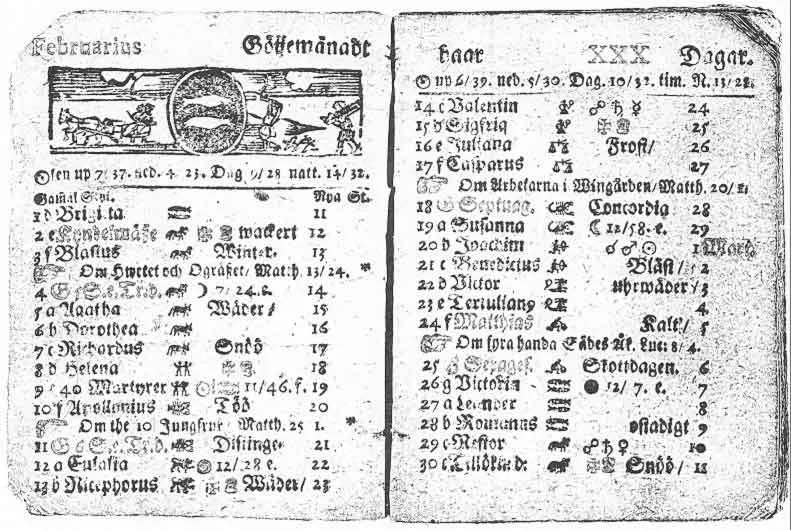 Februarius Götzemånadt
Solen up 7/37. ned. 4/23. Dag 9/28 natt. 14/32.
Gamal Styl. Nya St.
1 d Brigi.ta 11
2 e Kyndelmässe wackert 12
3 f Blasius Winter. 13
Om Hwetet och Ogräset/ Matth. 13/24.
4 G 5 S.e.Tr.d. 7/24.e. 14
5 a Agatha Wäder/ 15
6 b Dorothea 16
7 c Richardus Snöö 17
8 d Helena 18
9 e 40 Martyrer 11/46.f. 19
10 f Apollonius Töö 20
Om the 10 Jungfrur/ Matth. 25/1.
11 G 6 S.e.Tr.d. Distinge- 21
12 a Eulalia 12/28 e. 22
13 b Nicephorus Wäder/ 23
haar XXX Dagar.
up 6/39. ned. 5/30. Dag. 10/32. tim. N. 13/28.
14 c Valentin ☍ ♄ ☿ 24
15 d Sigfrid 25
16 e Juliana Frost/ 26
17 f Casparus 27
Om Arbetarna i Wingården/ Matth. 20/1.
18 G Septuag. Concordia 28
19 a Susanna ☾ 12/58. e. 29
20 b Joachim ☌ ♂ ☉ 1 Mart.
21 c Benedictus Blåst/ 2
22 d Victor uhrwäder/ 3
23 e Tertulian9 4
24 f Matthias Kalt/ 5
Om fyra handa Sädes Åk. Luc: 8/4.
25 g Sexages. Skottdagen. 6
26 g Victorin ● 12/7. e. 7
27 a Leander 8
28 b Romanus ostadigt 9
29 c Nestor ☍ ♄ ♀ 10
30 c Tillökn.d: Snöö/ 11